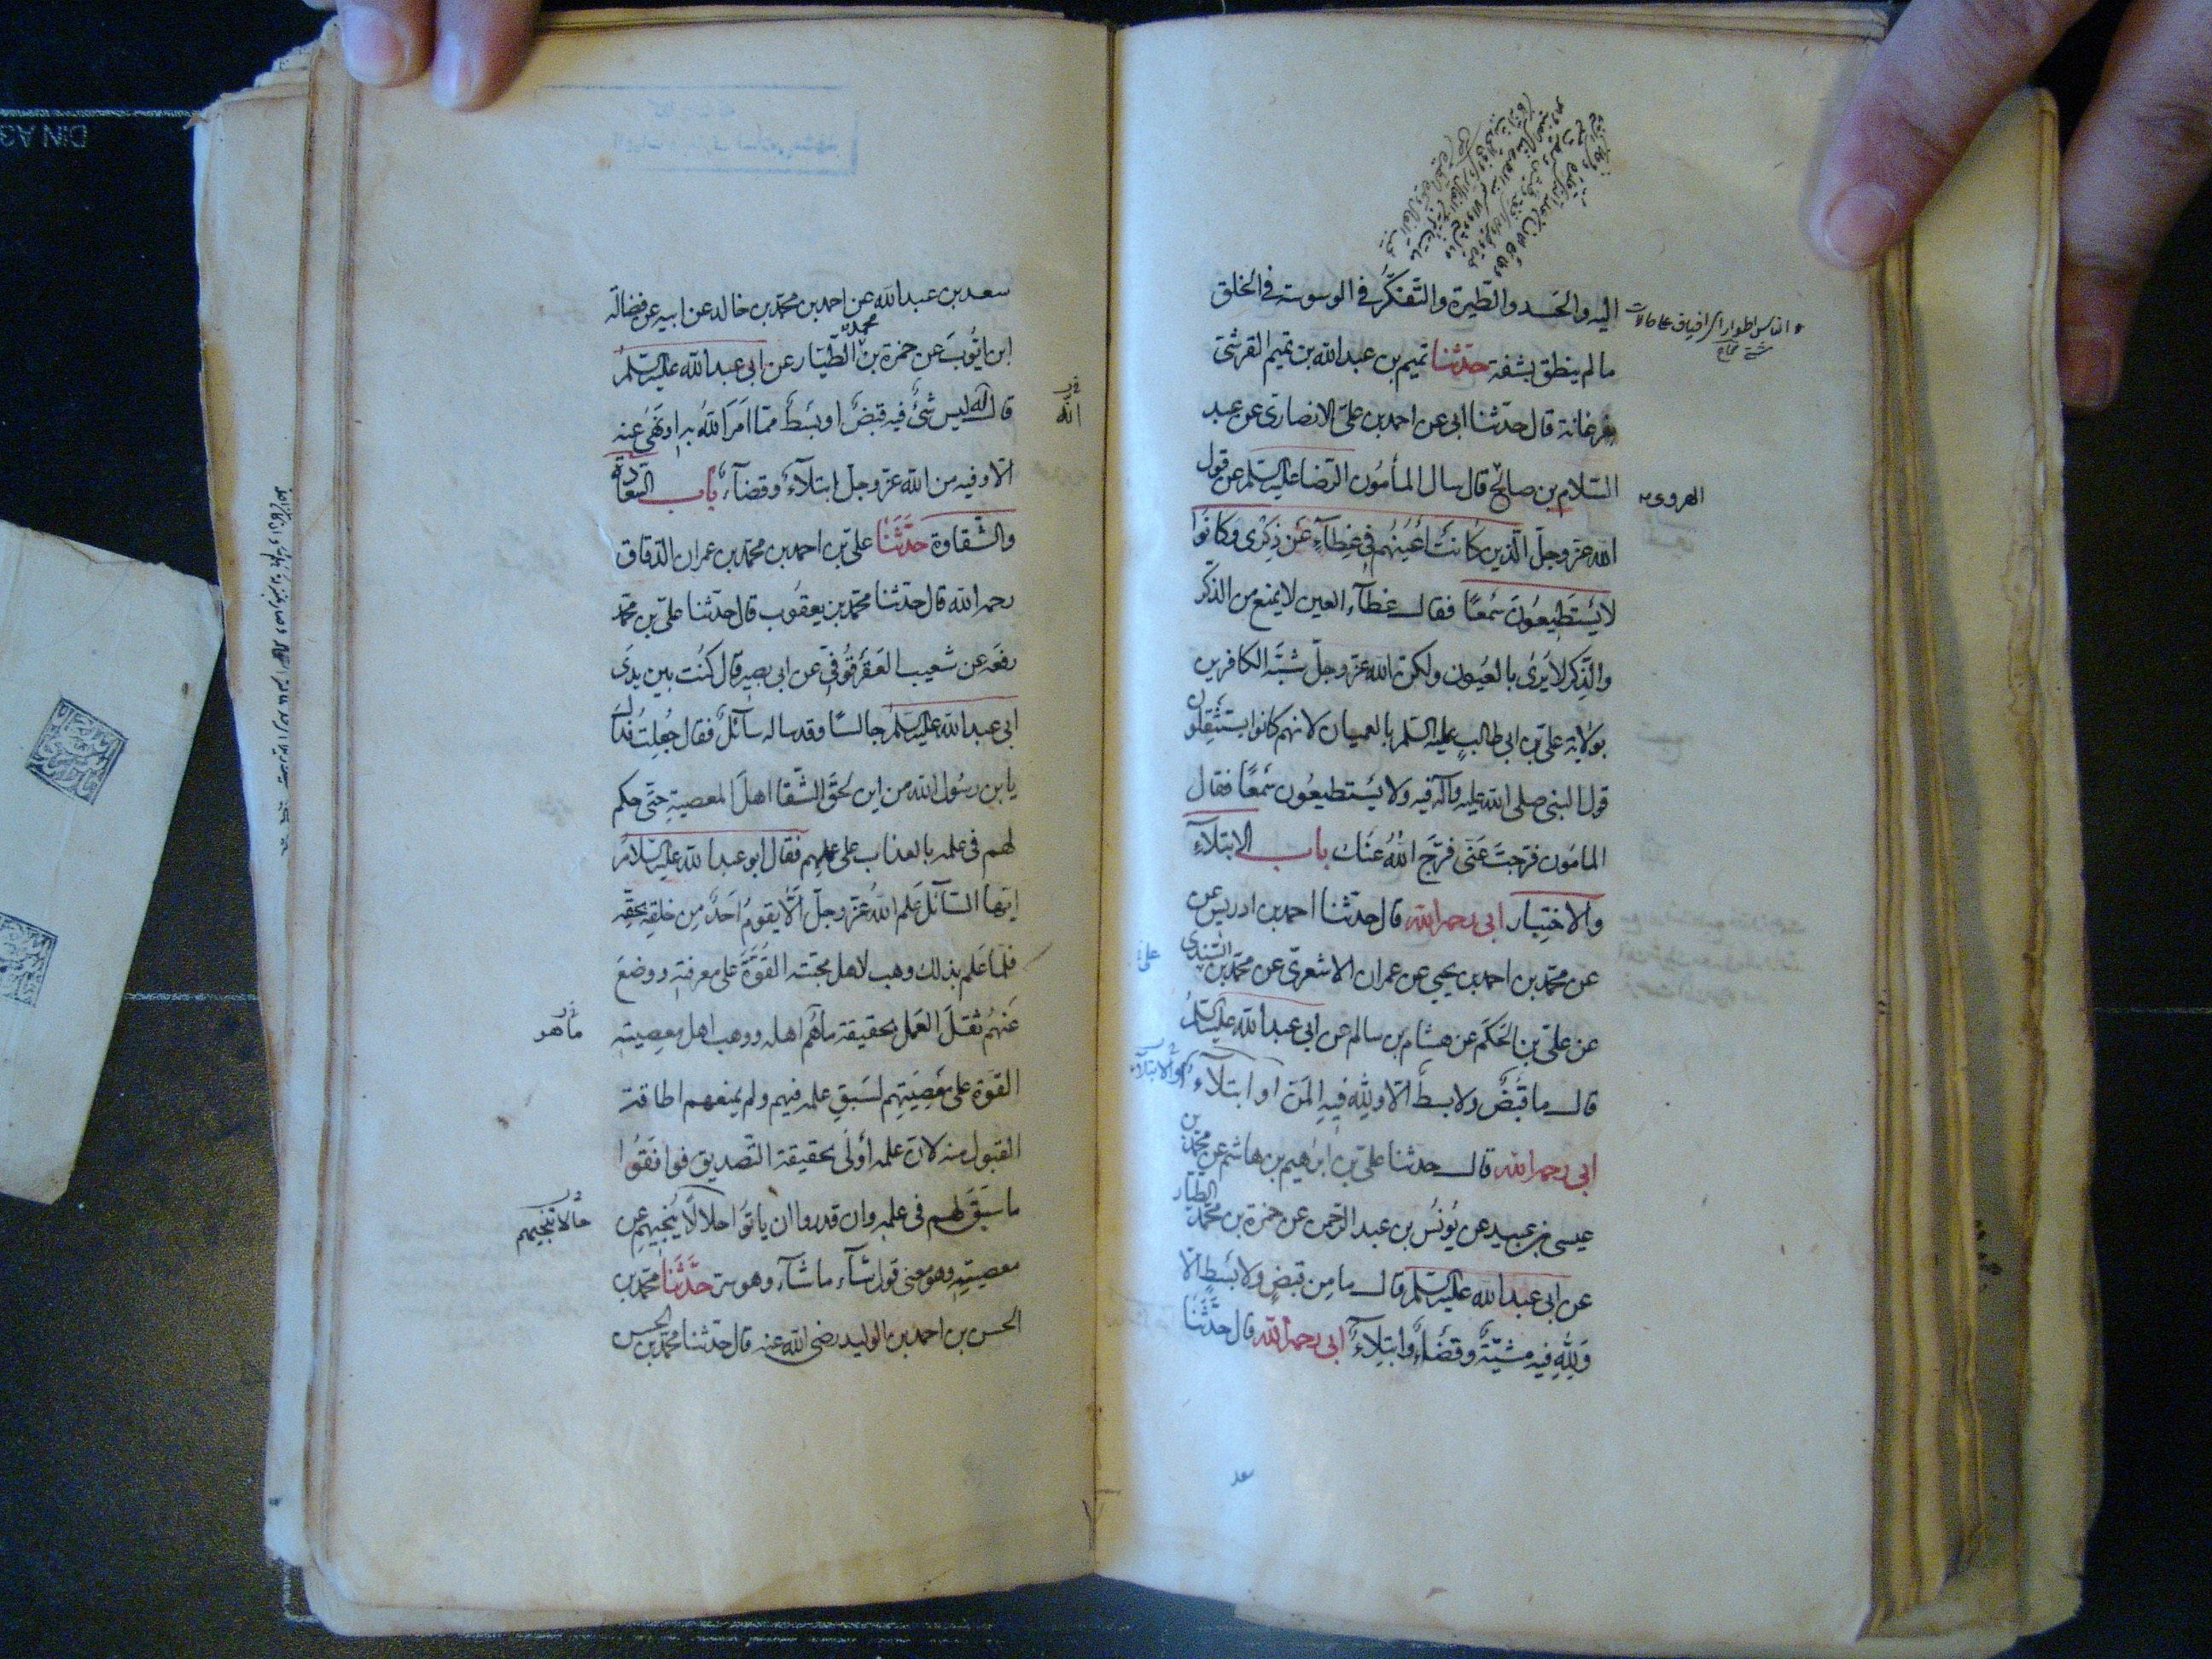 اليه والحسد والطّيرة والتّفكّر في الوسوسة في الخلق
ما لم ينطق بشفة حدّثنا تميم بن عبد الله بن تميم القرشيّ
بفرغانة قال حدّثنا ابى عن احمد بن علىّ الانصارىّ عن عبد
السّلام بن صالح قال سال المأمُون الرّضا عليه السّلم عن قول
الهروى
الله عزّ وجلّ الَّذين كَانَتْ أَعْيُنُهُم فِي غِطآءٍ عَن ذِكْرِى وَكَانُوا
لا يَسْتَطِيعُونَ سَمْعًا فقال غطآء العين لا يمنع من الذّكر
والذّكر لا يُرىٰ بالعُيون ولكنّ الله عزّ وجلّ شبّه الكافرين
بولاية علىّ بن ابى طالبٍ عليه السّلم بالعميان لانهم كانوا يستثقِلُون
قول النبى صلى الله عليه وآله فيه ولا يَسْتطيعُون سَمْعًا فقال
المامُون فرّجتَ عَنّى فرّج اللهُ عنك باب الابتلآءِ
والاختِبار ابى رحمه الله قال حدّثنا احمد بن ادريس عن
عن محمّد بن احمد بن يحيى عن عمران الاشعرىّ عن محمّد بن السّندى
علىّ
عن علىّ بن الحَكَم عن هشام بن سالم عن ابى عبد الله عليه السّلمُ
قال ما قَبضٌ ولا بسطٌ الّا وللهِ فيهِ المَنّ او ابتلآء
والابتلآء
ابى رحمه الله قال حدثنا علىّ بن ابرٰهيم بن هاشم عن محمّد بن
عيسى بن عبيد عن يُونسُ بن عبد الرّحمن عن حمزة بن محمّد الطّيّار
عن ابى عبد الله عليه السّلم قال ما مِن قبضٍ ولا بَسْطٍ الّا
وَلِلّٰهِ فيهِ مشيّةٌ وقضآءٌ وابتِلآءٌ ابى رحمه الله قال حدّثَنا
سعد
سعد بن عبد الله عن احمد بن محمّد بن خالد عن ابيه عن فضالة
ابن ايّوبَ عن حمزة بن محمّد الطّيّار عن ابى عبد الله عليه السّلمُ
قال انّه ليس شىٌ فيه قبضٌ او بسَطٌ ممّا اَمرَ اللهُ به او نَهىٰ عنه
الله
الّا وفيه من الله عزّ وجلّ ابتلآءٌ وقضآءٌ باب السّعادة
والشّقاوة حدَّثَنا علىّ بن احمد بن محمّد بن عمران الدّقاق
رحمه الله قال حدّثنا محمّد بن يعقُوب قال حدّثنا علىّ بن محمّد
رفعَه عن شعيب العَقرقُوفىّ عن ابى بصير قال كنُت بين يدَى
ابى عبد الله عليه السّلم جالسًا وقد ساله سآئلٌ فقال جُعِلتُ فداك
يا بن رسُول الله من اين لحقَ الشّقا اهلَ المعصيةِ حتّى حكم
لهم فى علمه بالعذاب على عملهم فقال ابو عبد الله عليه السّلامُ
ايّها السّآئل عَلم اللهُ عزّ وجلّ اَلّا يقومُ اَحَدٌ مِن خلقِه بحقّه
فلمّا عَلم بذلك وهب لاهل محبّته القُوّةَ على معرفتِه ووضعَ
عَنهُم ثقلَ العَمل بحقيقة ما هُم اهله ووهب اهل معصِيته
ما هو
القوّة على مَعْصِيَتِهم لسَبقِ علمه فيهم ولم يمنعهم اطاقة
القبول منه لانّ علمه أولَى بحقيقة التّصديق فوافقُوا
ما سبَقَ لهم فى علمه وان قدروا ان ياتُوا خلالًا يُنجّيهم عن
حالا تنجيهم
معصيتِه وهو معنى قول شآء ما شآء وهو سرّ حدَّثَنا محمّد بن
الحسن بن احمد بن الوليد رضى الله عنه قال حدّثنا محمّد بن الحسن